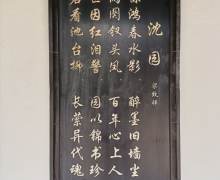 沈园
鸿春水影 醉墨旧墙尘
阕钗头凤 百年心上人
因红泪 园以锦书珍
看池台柳 长萦异代魂